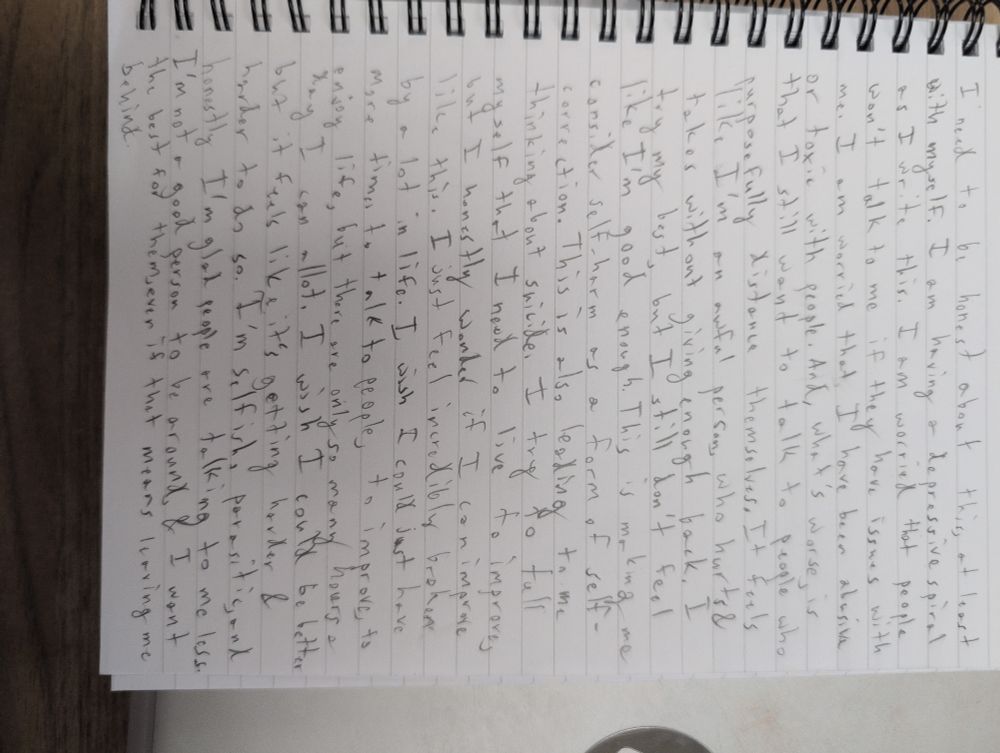 I need to be honest about this, at least
with myself. I am having a depressive spiral
as I write this. I am worried that people
won't talk to me if they have issues with
me. I am worried that I have been abusive
or toxic with people. And, what's worse, is
that I still want to talk to people who
purposefully distance themselves. It feels
like I'm an awful person, who hurts &
takes without giving enough back. I
try my best, but I still don't feel
like I'm good enough. This is making me
consider self-harm as a form of self-
correction. This is also leading to me
thinking about suicide. I try to tell
myself that I need to live to improve,
but I honestly wonder if I can improve
like this. I just feel incredibly broken
by a lot in life. I wish I could just have
more time to talk to people, to improve, to
enjoy life, but there are only so many hours a
day I can allot. I wish I could be better
but it feels like it's getting harder &
harder to do so. I'm selfish, parasitic, and
honestly I'm glad people are talking to me less.
I'm not a good person to be around, & I want
the best for them, even if that means leaving me
behind.